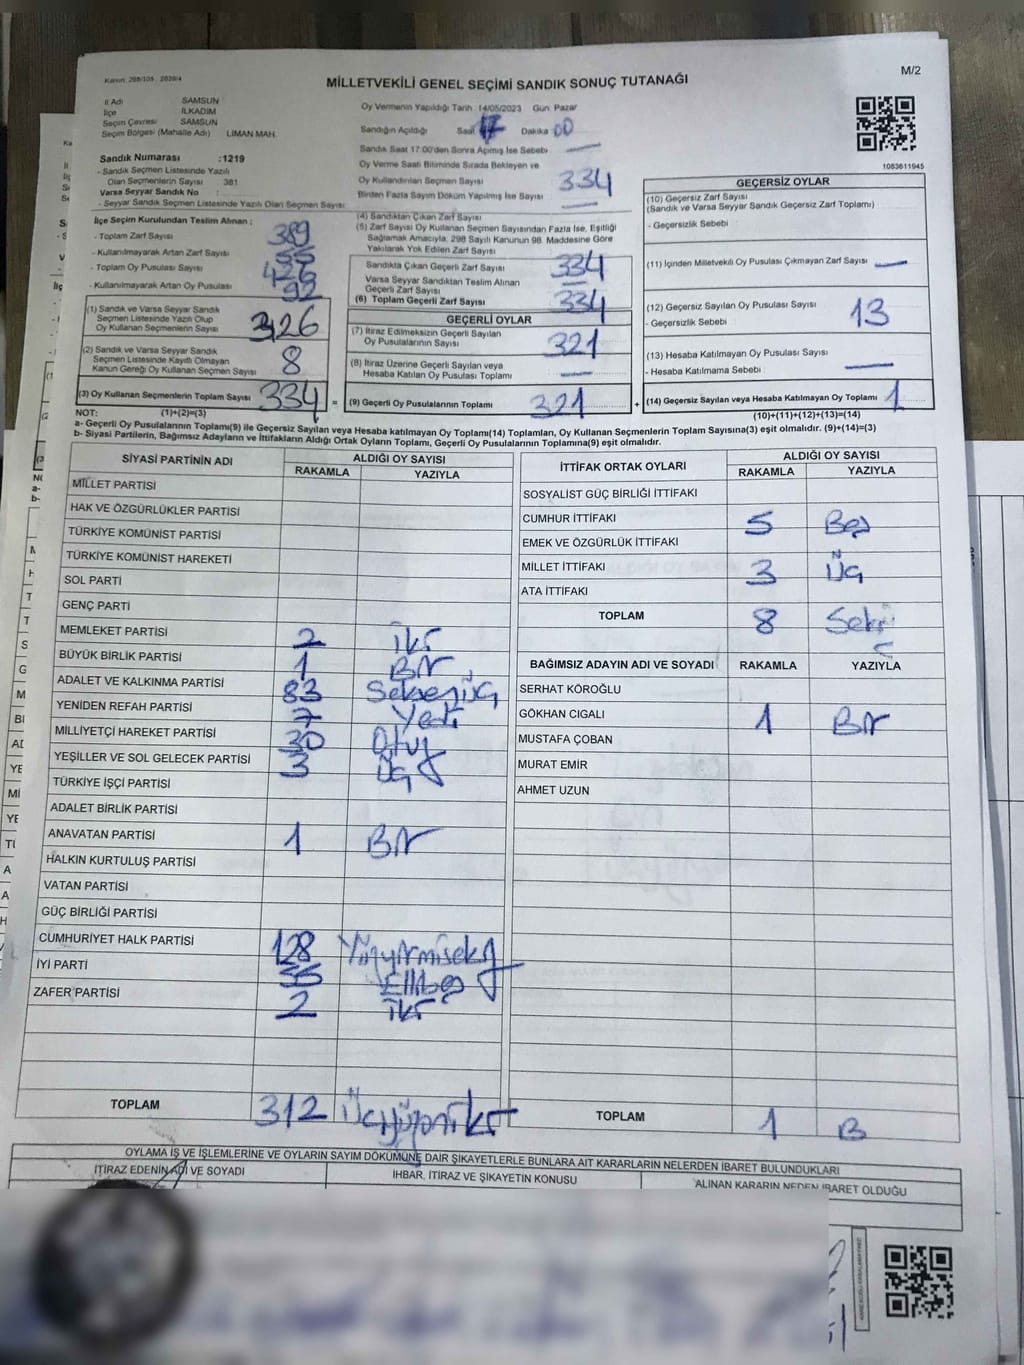 Kanun: 298/105 , 2839/4
MİLLETVEKİLİ GENEL SEÇİMİ SANDIK SONUÇ TUTANAĞI
M/2
İl Adı SAMSUN
İlçe İLKADIM
Seçim Çevresi SAMSUN
Seçim Bölgesi (Mahalle Adı) LİMAN MAH.
Sandık Numarası :1219
- Sandık Seçmen Listesinde Yazılı
Olan Seçmenlerin Sayısı : 381
Varsa Seyyar Sandık No :
- Seyyar Sandık Seçmen Listesinde Yazılı Olan Seçmen Sayısı
Oy Vermenin Yapıldığı Tarih :14/05/2023 Gün: Pazar
Sandığın Açıldığı Saat 17 Dakika 00
Sandık Saat 17:00'den Sonra Açılmış İse Sebebi —
Oy Verme Saati Bitiminde Sırada Bekleyen ve
Oy Kullandırılan Seçmen Sayısı 334
Birden Fazla Sayım Döküm Yapılmış İse Sayısı —
1083611945
İlçe Seçim Kurulundan Teslim Alınan :
- Toplam Zarf Sayısı 389
- Kullanılmayarak Artan Zarf Sayısı 55
- Toplam Oy Pusulası Sayısı 426
- Kullanılmayarak Artan Oy Pusulası 92
(1) Sandık ve Varsa Seyyar Sandık
Seçmen Listesinde Yazılı Olup
Oy Kullanan Seçmenlerin Sayısı 326
(2) Sandık ve Varsa Seyyar Sandık
Seçmen Listesinde Kayıtlı Olmayan
Kanun Gereği Oy Kullanan Seçmen Sayısı 8
(3) Oy Kullanan Seçmenlerin Toplam Sayısı 334 =
(4) Sandıktan Çıkan Zarf Sayısı
(5) Zarf Sayısı Oy Kullanan Seçmen Sayısından Fazla İse, Eşitliği
Sağlamak Amacıyla, 298 Sayılı Kanunun 98. Maddesine Göre
Yakılarak Yok Edilen Zarf Sayısı
Sandıkta Çıkan Geçerli Zarf Sayısı 334
Varsa Seyyar Sandıktan Teslim Alınan
Geçerli Zarf Sayısı
(6) Toplam Geçerli Zarf Sayısı 334
GEÇERLİ OYLAR
(7) İtiraz Edilmeksizin Geçerli Sayılan
Oy Pusulalarının Sayısı 321
(8) İtiraz Üzerine Geçerli Sayılan veya
Hesaba Katılan Oy Pusulası Toplamı —
(9) Geçerli Oy Pusulalarının Toplamı 321 +
GEÇERSİZ OYLAR
(10) Geçersiz Zarf Sayısı
(Sandık ve Varsa Seyyar Sandık Geçersiz Zarf Toplamı)
- Geçersizlik Sebebi
(11) İçinden Milletvekili Oy Pusulası Çıkmayan Zarf Sayısı —
(12) Geçersiz Sayılan Oy Pusulası Sayısı 13
- Geçersizlik Sebebi
(13) Hesaba Katılmayan Oy Pusulası Sayısı
- Hesaba Katılmama Sebebi —
(14) Geçersiz Sayılan veya Hesaba Katılmayan Oy Toplamı 1
NOT: (1)+(2)=(3)
(10)+(11)+(12)+(13)=(14)
a- Geçerli Oy Pusulalarının Toplamı(9) ile Geçersiz Sayılan veya Hesaba katılmayan Oy Toplamı(14) Toplamları, Oy Kullanan Seçmenlerin Toplam Sayısına(3) eşit olmalıdır. (9)+(14)=(3)
b- Siyasi Partilerin, Bağımsız Adayların ve İttifakların Aldığı Ortak Oyların Toplamı, Geçerli Oy Pusulalarının Toplamına(9) eşit olmalıdır.
SİYASİ PARTİNİN ADI ALDIĞI OY SAYISI
RAKAMLA YAZIYLA
MİLLET PARTİSİ
HAK VE ÖZGÜRLÜKLER PARTİSİ
TÜRKİYE KOMÜNİST PARTİSİ
TÜRKİYE KOMÜNİST HAREKETİ
SOL PARTİ
GENÇ PARTİ
MEMLEKET PARTİSİ 2 iki
BÜYÜK BİRLİK PARTİSİ 1 Bir
ADALET VE KALKINMA PARTİSİ 83 Seksenüç
YENİDEN REFAH PARTİSİ 7 Yedi
MİLLİYETÇİ HAREKET PARTİSİ 30 Otuz
YEŞİLLER VE SOL GELECEK PARTİSİ 3 Üç
TÜRKİYE İŞÇİ PARTİSİ
ADALET BİRLİK PARTİSİ
ANAVATAN PARTİSİ 1 Bir
HALKIN KURTULUŞ PARTİSİ
VATAN PARTİSİ
GÜÇ BİRLİĞİ PARTİSİ
CUMHURİYET HALK PARTİSİ 128 Yüzyirmisekiz
İYİ PARTİ 55 Ellibeş
ZAFER PARTİSİ 2 iki
TOPLAM 312 Üçyüzoniki
İTTİFAK ORTAK OYLARI ALDIĞI OY SAYISI
RAKAMLA YAZIYLA
SOSYALİST GÜÇ BİRLİĞİ İTTİFAKI
CUMHUR İTTİFAKI 5 Beş
EMEK VE ÖZGÜRLÜK İTTİFAKI
MİLLET İTTİFAKI 3 Üç
ATA İTTİFAKI
TOPLAM 8 Sekiz
BAĞIMSIZ ADAYIN ADI VE SOYADI RAKAMLA YAZIYLA
SERHAT KÖROĞLU
GÖKHAN CIGALI 1 Bir
MUSTAFA ÇOBAN
MURAT EMİR
AHMET UZUN
TOPLAM 1 B
OYLAMA İŞ VE İŞLEMLERİNE VE OYLARIN SAYIM DÖKÜMÜNE DAİR ŞİKAYETLERLE BUNLARA AİT KARARLARIN NELERDEN İBARET BULUNDUKLARI
İTİRAZ EDENİN ADI VE SOYADI
İHBAR, İTİRAZ VE ŞİKAYETİN KONUSU
ALINAN KARARIN NEDEN İBARET OLDUĞU